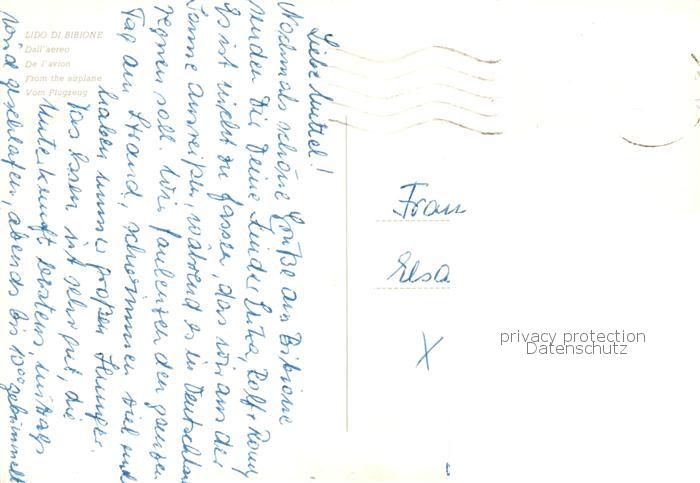 LIDO DI BIBIONE
Dall'aereo
De l'avion
From the airplane
Vom Flugzeug
Liebe Muttel!
Nochmals schöne Grüße aus Bibione
senden Dir Deine Kinder Erika, Rolf + Romy
Es ist nicht zu fassen, das wir aus der
Sonne ausreißen, während es in Deutschland
regnen soll. Wir faulenzen den ganzen
Tag am Strand, schwimmen viel und
haben immer großen Hunger.
Das Essen ist sehr gut, die
Unterkunft bestens, mittags
wird geschlafen, abends bis 10⁰⁰ gebummelt
Frau
Elsa
X
privacy protection
Datenschutz